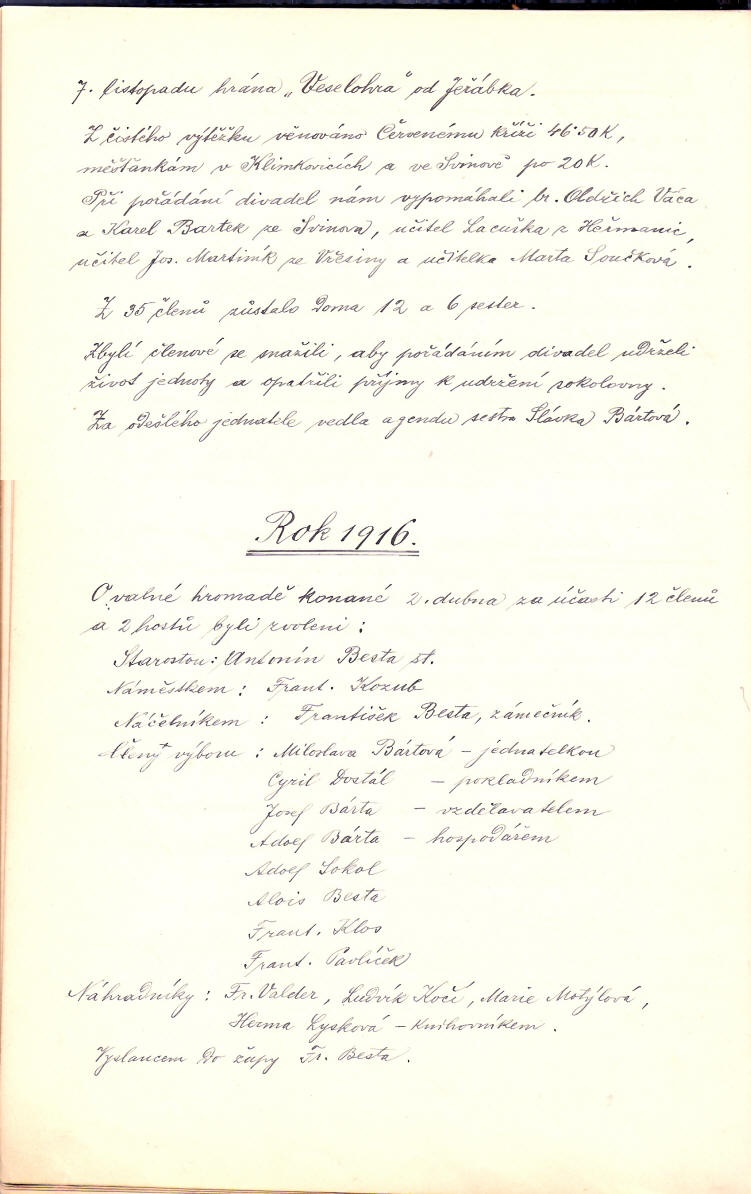 7. listopadu hrána „Veselohra" od Jeřábka.
Z čistého výtěžku věnováno Červenému kříži 46·50 K,
měšťankám v Klimkovicích a ve Svinově po 20 K.
Při pořádání divadel nám vypomáhali br. Oldřich Váca
a Karel Bartek ze Svinova, učitel Lacuška z Heřmanic,
učitel Jos. Martiník ze Vřesiny a učitelka Marta Součková.
Z 35 členů zůstalo doma 12 a 6 sester.
Zbylí členové se snažili, aby pořádáním divadel udrželi
život jednoty a opatřili příjmy k udržení sokolovny.
Za odešlého jednatele vedla agendu sestra Slávka Bártová.
Rok 1916.
O valné hromadě konané 2. dubna za účasti 12 členů
a 2 hostů byli zvoleni:
Starostou: Antonín Besta st.
Náměstkem: Frant. Kozub
Náčelníkem: František Besta, zámečník.
Členy výboru: Miloslava Bártová – jednatelkou
Cyril Dostál – pokladníkem
Josef Bárta – vzdělavatelem
Adolf Bárta – hospodářem
Adolf Sokol
Alois Besta
Frant. Klos
Frant. Pavlíček
Náhradníky: Fr. Valder, Ludvík Kočí, Marie Motýlová,
Herma Lysková – knihovníkem.
Vyslancem do župy Fr. Besta.